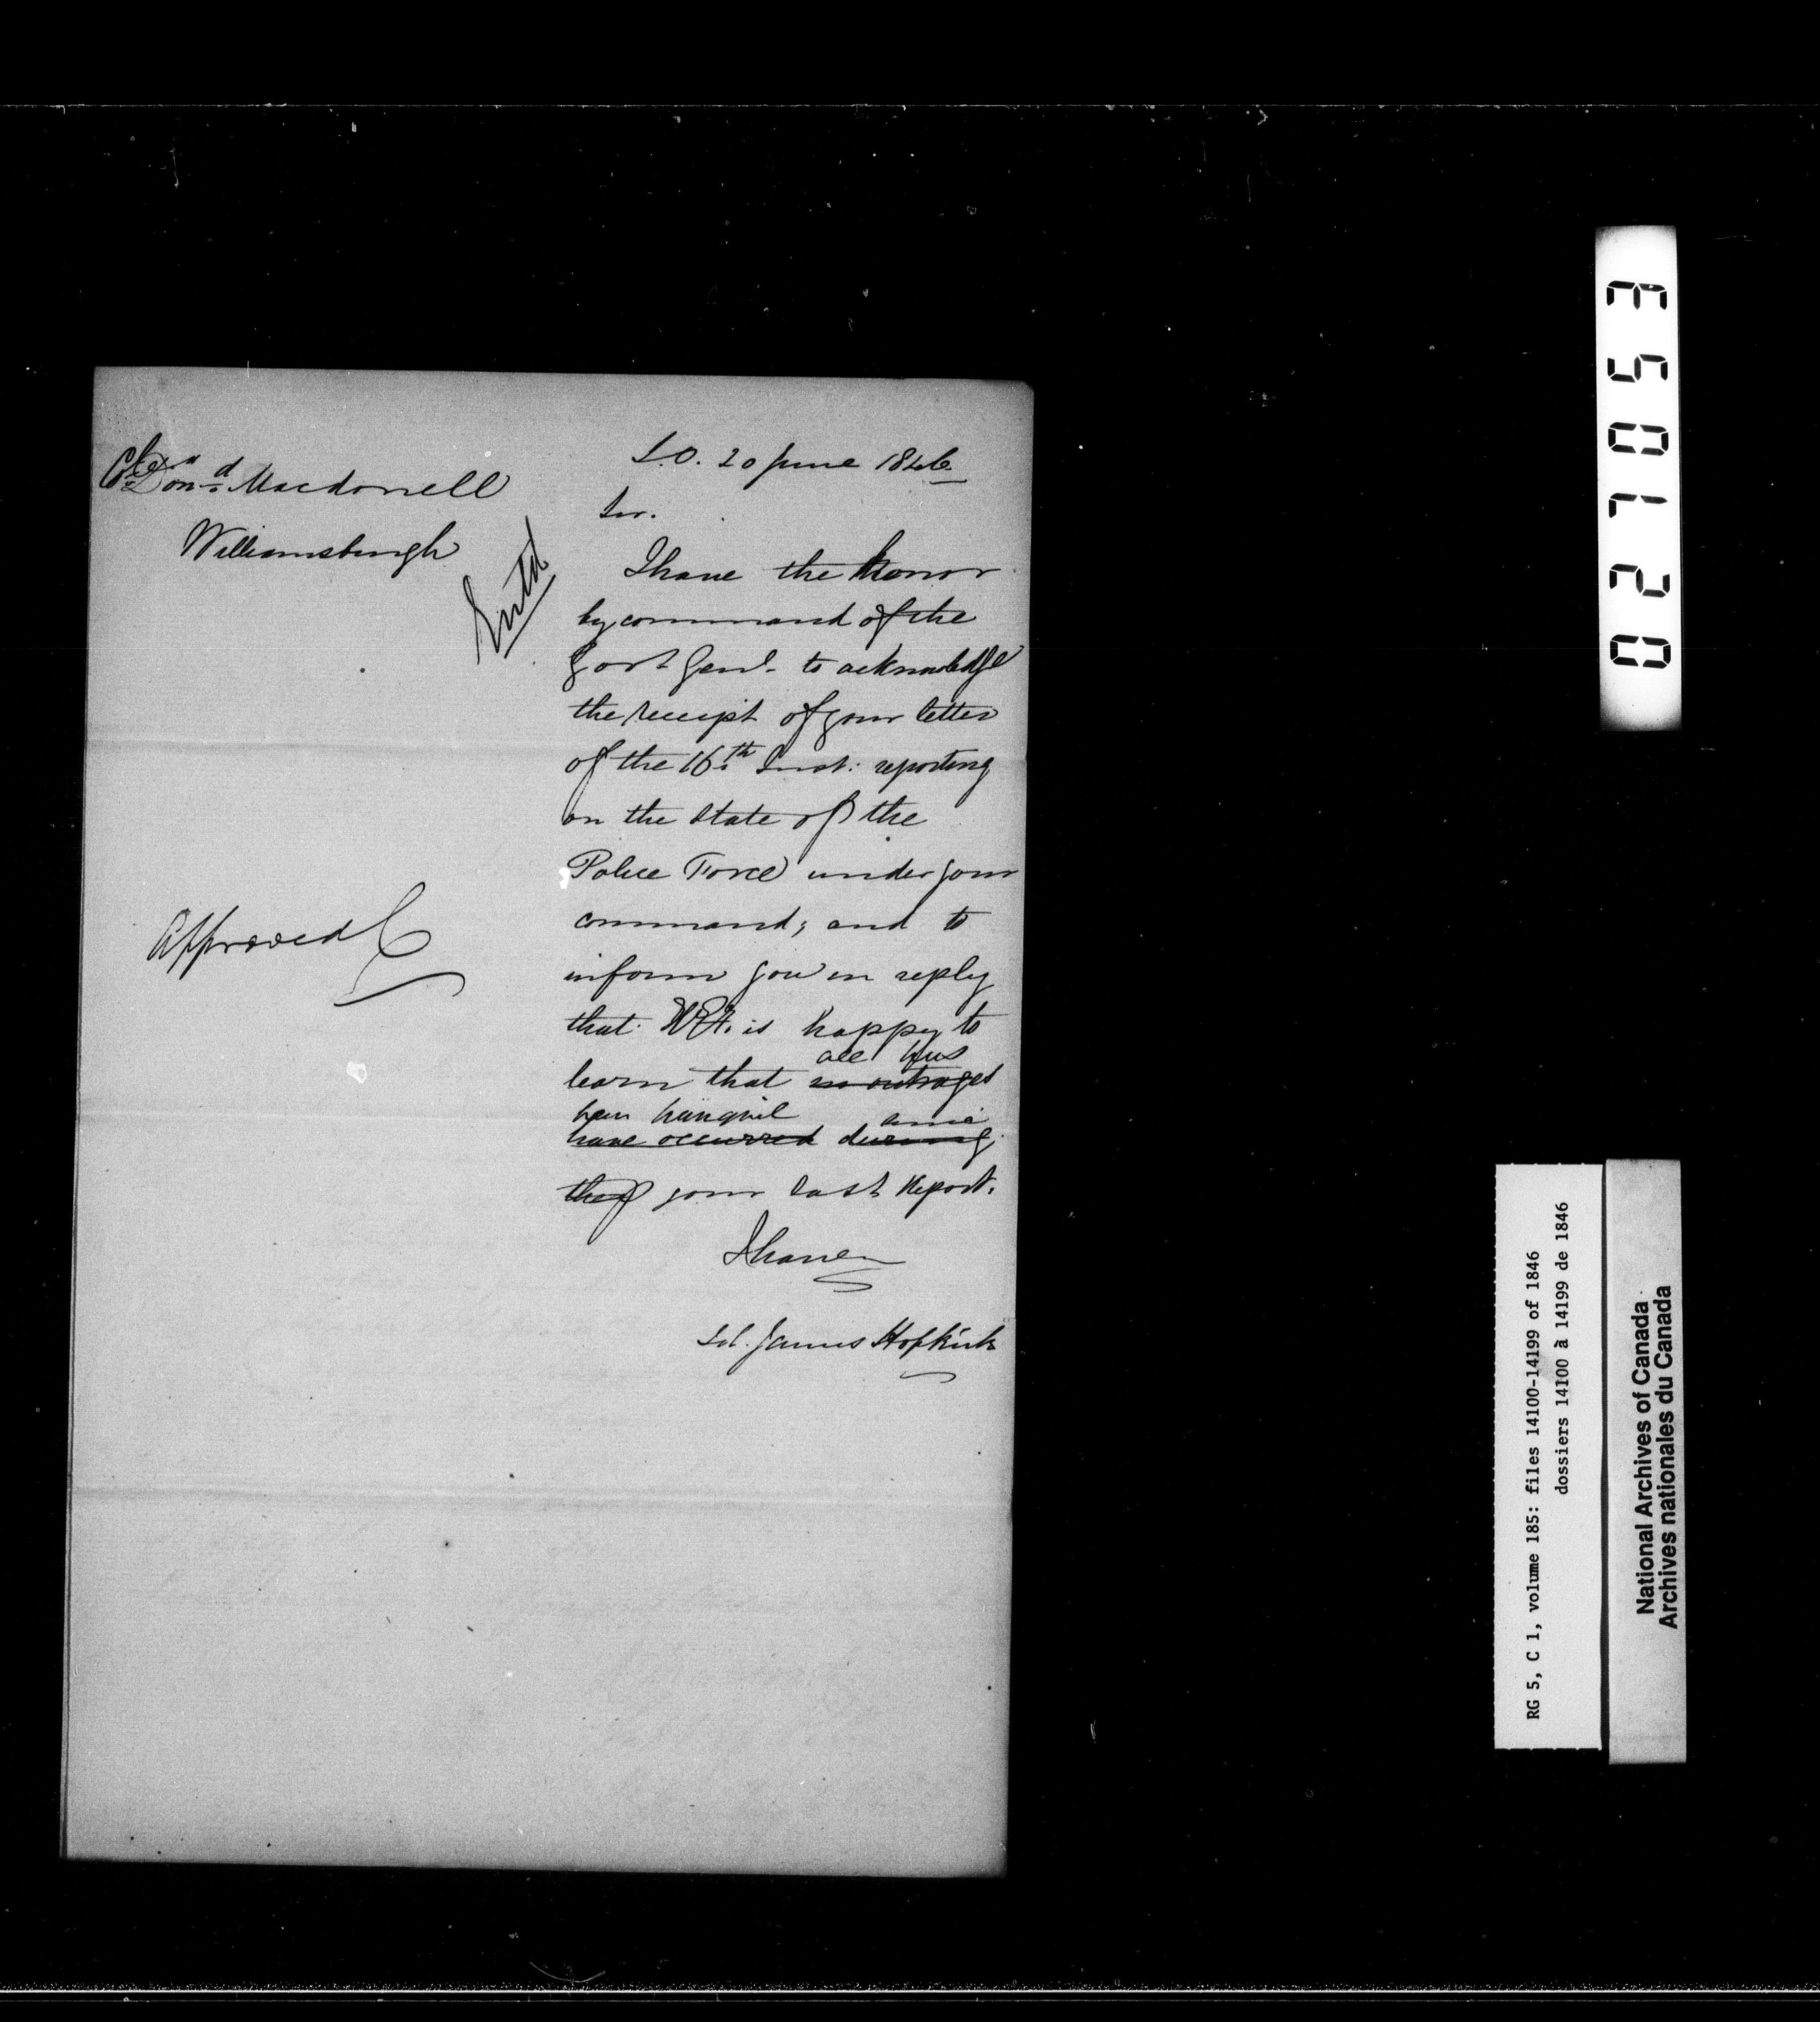 Col Don:d Macdonell
Williamsburgh
S.O. 20 June 1846
Sir.
Entd
I have the honor
by command of the
Govr Genl. to acknowledge
the receipt of your letter
of the 16th Inst: reporting
on the State of the
Police Force under your
command; and to
inform you in reply
that H.E. is happy to
all has
learn that no outrages
been tranquil since
have occurred during
the your last Report.
Approved
I have
Sd. James Hopkirk
E 50720
RG 5, C 1, volume 185: files 14100-14199 of 1846
dossiers 14100 à 14199 de 1846
National Archives of Canada
Archives nationales du Canada